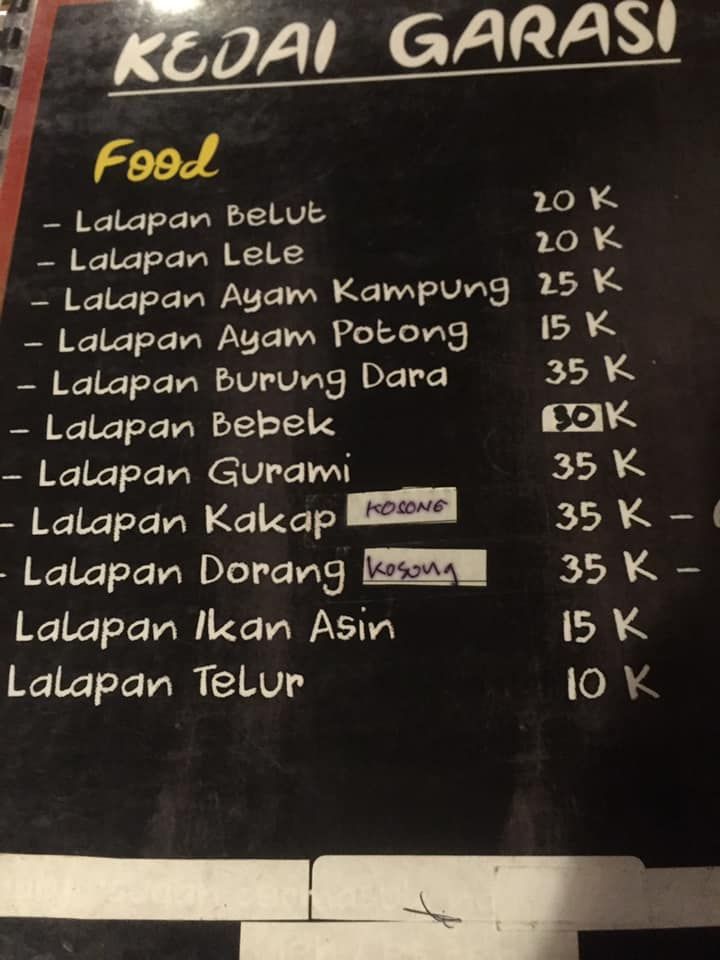 KEDAI GARASI
Food
- Lalapan Belut 20 K
- Lalapan Lele 20 K
- Lalapan Ayam Kampung 25 K
- Lalapan Ayam Potong 15 K
- Lalapan Burung Dara 35 K
- Lalapan Bebek 30 K
- Lalapan Gurami 35 K
- Lalapan Kakap KOSONG 35 K -
- Lalapan Dorang Kosong 35 K -
Lalapan Ikan Asin 15 K
Lalapan Telur 10 K